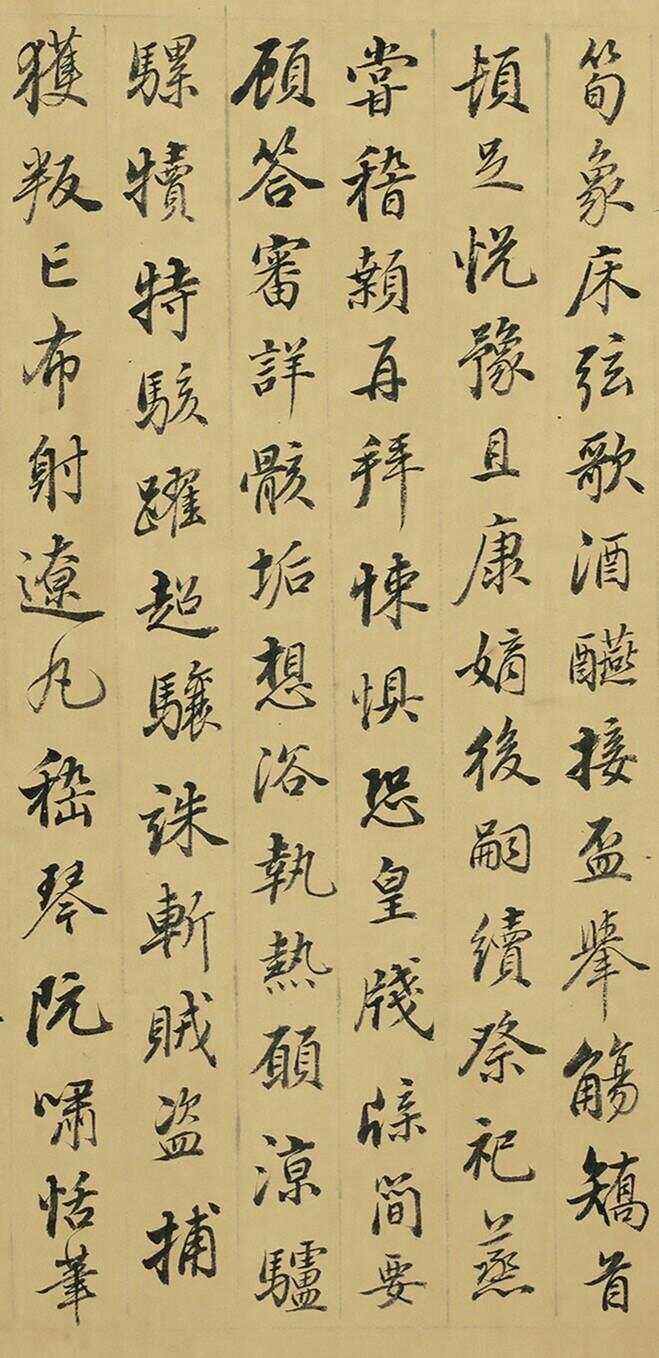 筍象床弦歌酒醼接盃舉觴矯首
頓足悅豫且康嫡後嗣續祭祀蒸
甞稽顙再拜悚惧恐皇牋牒簡要
顧答審詳骸垢想浴執熱願涼驢
騾犢特駭躍超驤誅斬賊盜捕
獲叛亡布射遼丸嵇琴阮嘯恬筆